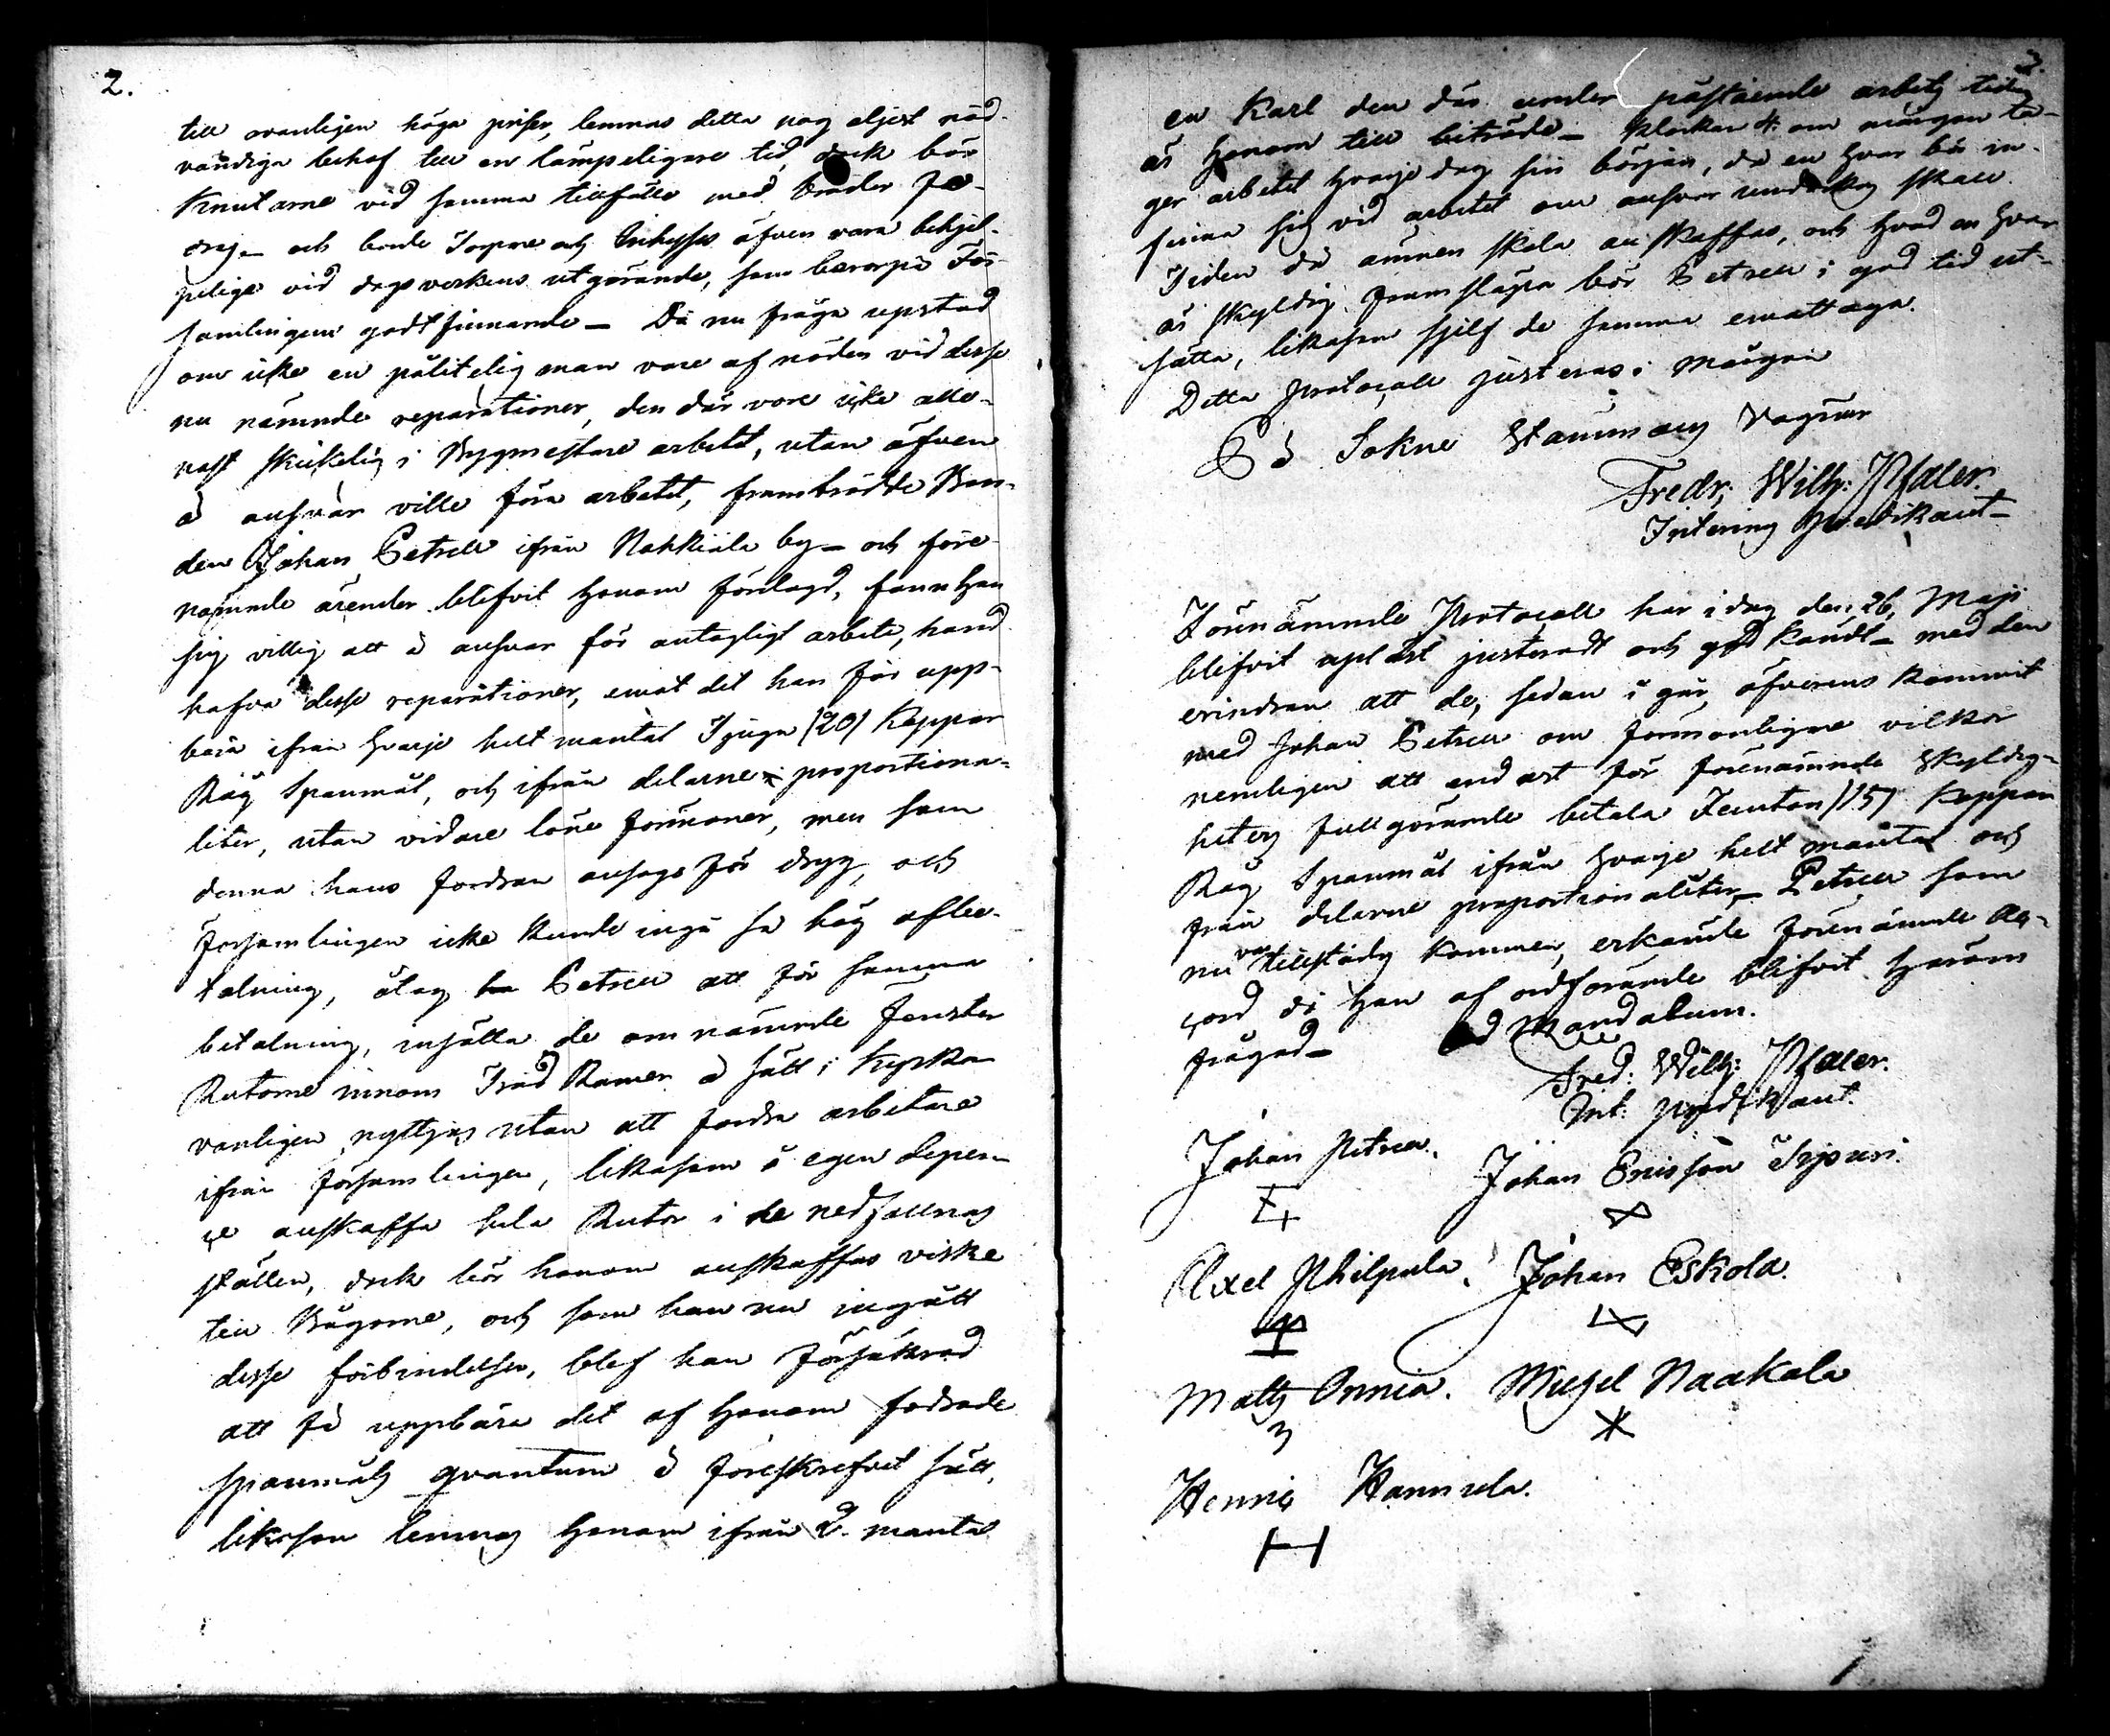 2.
till ovanligen höga priser, lemnas detta nog eljest nöd-
vändiga behof till en lämpeligare tid, dock bör
Knutarne vid samma tillfälle med bräder
och borde Torpare och Inhyses äfven vara behjel-
pelige vid dagsverkens utgörande, som beror på För-
samlingens godtfinnande — Då nu fråga upstod
om icke en pålitelig man vore af nöden vid desse
nu nämnde reparationer, den där vore icke alle-
nast skickelig i Byggmestare arbetet, utan äfven
å ansvar ville föra arbetet, framträdde Bon-
den Johan Petrell ifrån Nakkila by — och före-
nämnde ärender blefvit honom förelagd, fann han
sig villig att å ansvar för antagligt arbete, hand
hafva desse reparationer, emot det han får upp-
bära ifrån hvarje helt mantal Tjugu (20) Kappar
Råg Spanmål, och ifrån delarne proportiona-
liter, utan vidare löne förmoner, men som
denna hans fordran ansågs för dryg, och
Församlingen icke kunde ingå så hög aflö-
talning, åtog Petrell att för samma
betalning, insätta de omnämnde Fenster
Rutorne innom Träd Ramen å sätt i Kyrkan
vanligen nyttjas utan att fordra arbetare
ifrån församlingen, likasom å egen depen-
ce anskaffa hela Rutor i de nedfallnas
ställen, dock bör honom anskaffas virke
till Bågorne, och som han nu ingått
desse förbindelser, blef han försäkrad
att få uppbära det af honom fodrade
spanmåls qvantum å föreskrefvet sätt,
likasom lemnas honom ifrån 2. mantal
3.
en Karl den där under påstående arbets tiden
är honom till biträde — Klockan 4. om morgon ta-
ger arbetet hvarje dag sin början, då en hvar bör in-
finna sig vid arbetet om ansvar undvikas skall.
Tiden då ämnen skola anskaffas, och hvad en hvar
är skyldig framsläpa bör Petrell i god tid ut-
sätta, likasom sjelf de samma emottaga.
Detta protocoll justeras i morgon
På Sokne Stämmans Vagnar
Fredr. Wilh: Pfaler.
Interims Predikant —
Förenämnde Protocoll har i dag den 26 Maji
blifvit upläst justeradt och godkändt — med den
erindran att de, sedan i går, öfverens kommit
med Johan Petrell om förmonligare vilkor
nemligen att endast för förenämnde skyldig-
heters fullgörande betala Femton (15) Kappar
Råg Spanmål ifrån hvarje helt mantal och
från delarne proportionaliter — Petrell som
nu var tillstädes kommen, erkände förenämnde Ac-
cord då han af ordförande blifvit härom
frågad — Ad Mandatum.
Fred: Wilh: Pfaler.
Int: predikant.
Johan Petrell. Johan Ericsson Irjseri.
Axel Philpula. Johan Eskola.
Matts Annia. Michel Naakala
Henric Hannula.
H